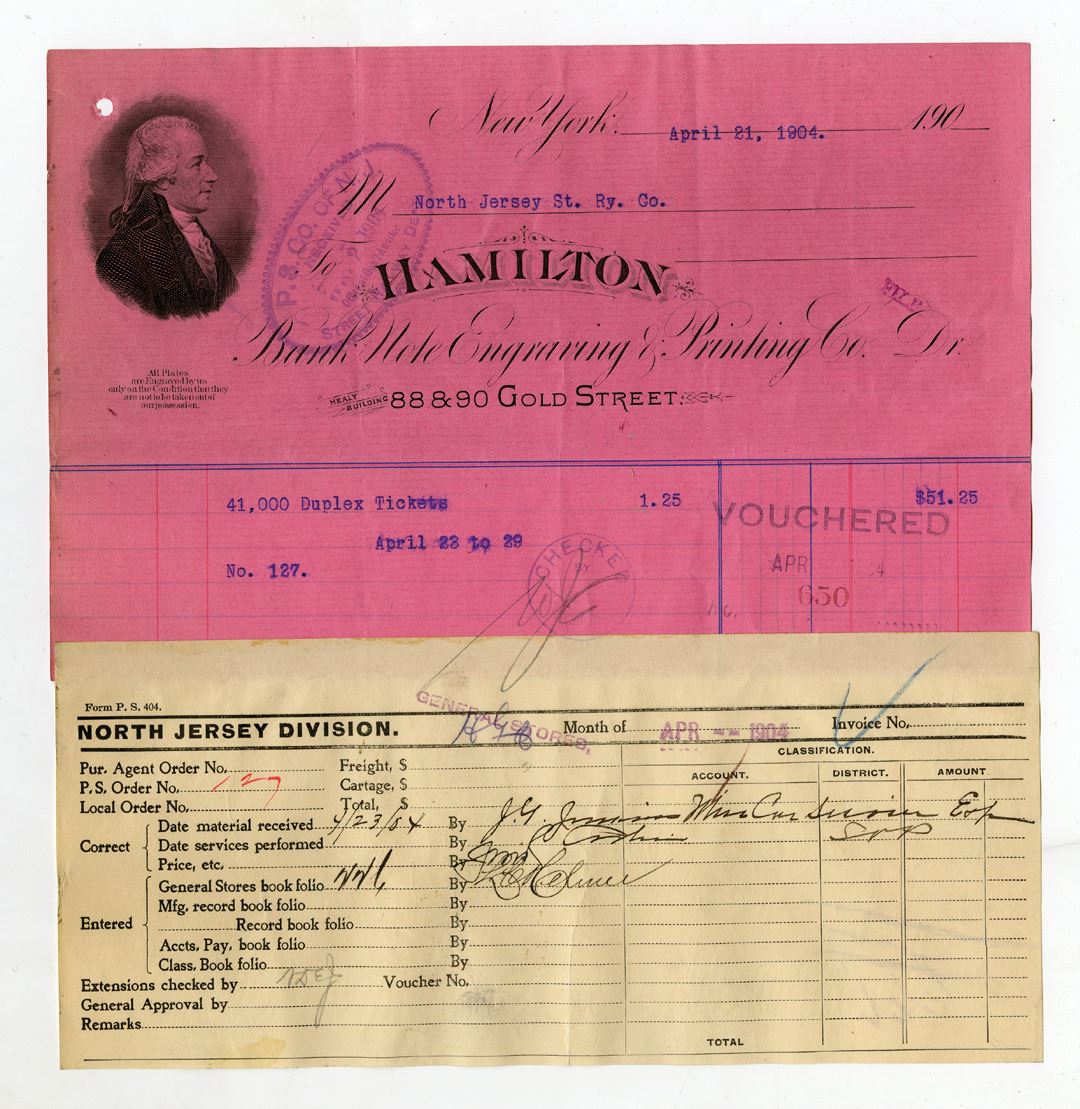 New York, April 21, 1904. 190
M North Jersey St. Ry. Co.
P. S. CO. OF N. J.
To HAMILTON
FILE
Bank Note Engraving & Printing Co. Dr.
All Plates
are Engraved by us
only on the Condition that they
are not to be taken out of
our possession.
HEALY BUILDING 88 & 90 GOLD STREET.
41,000 Duplex Tickets 1.25 $51.25
VOUCHERED
April 23 to 29
CHECKED BY
APR 4
No. 127.
650
Form P. S. 404.
GENERAL STORES,
NORTH JERSEY DIVISION. Month of APR -- 1904 Invoice No.
CLASSIFICATION.
Pur. Agent Order No. Freight, $
ACCOUNT. DISTRICT. AMOUNT
P.S. Order No. 127 Cartage, $
Local Order No. Total, $
Correct
Date material received 4/23/04 By J. F.
Date services performed By
Price, etc. By
Entered
General Stores book folio 446 By
Mfg. record book folio By
Record book folio By
Accts. Pay. book folio By
Class. Book folio By
Extensions checked by Voucher No.
General Approval by
Remarks
TOTAL